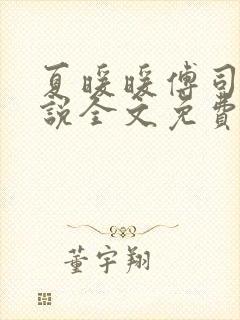 夏暖暖傅司
说全文免费
董宇翔